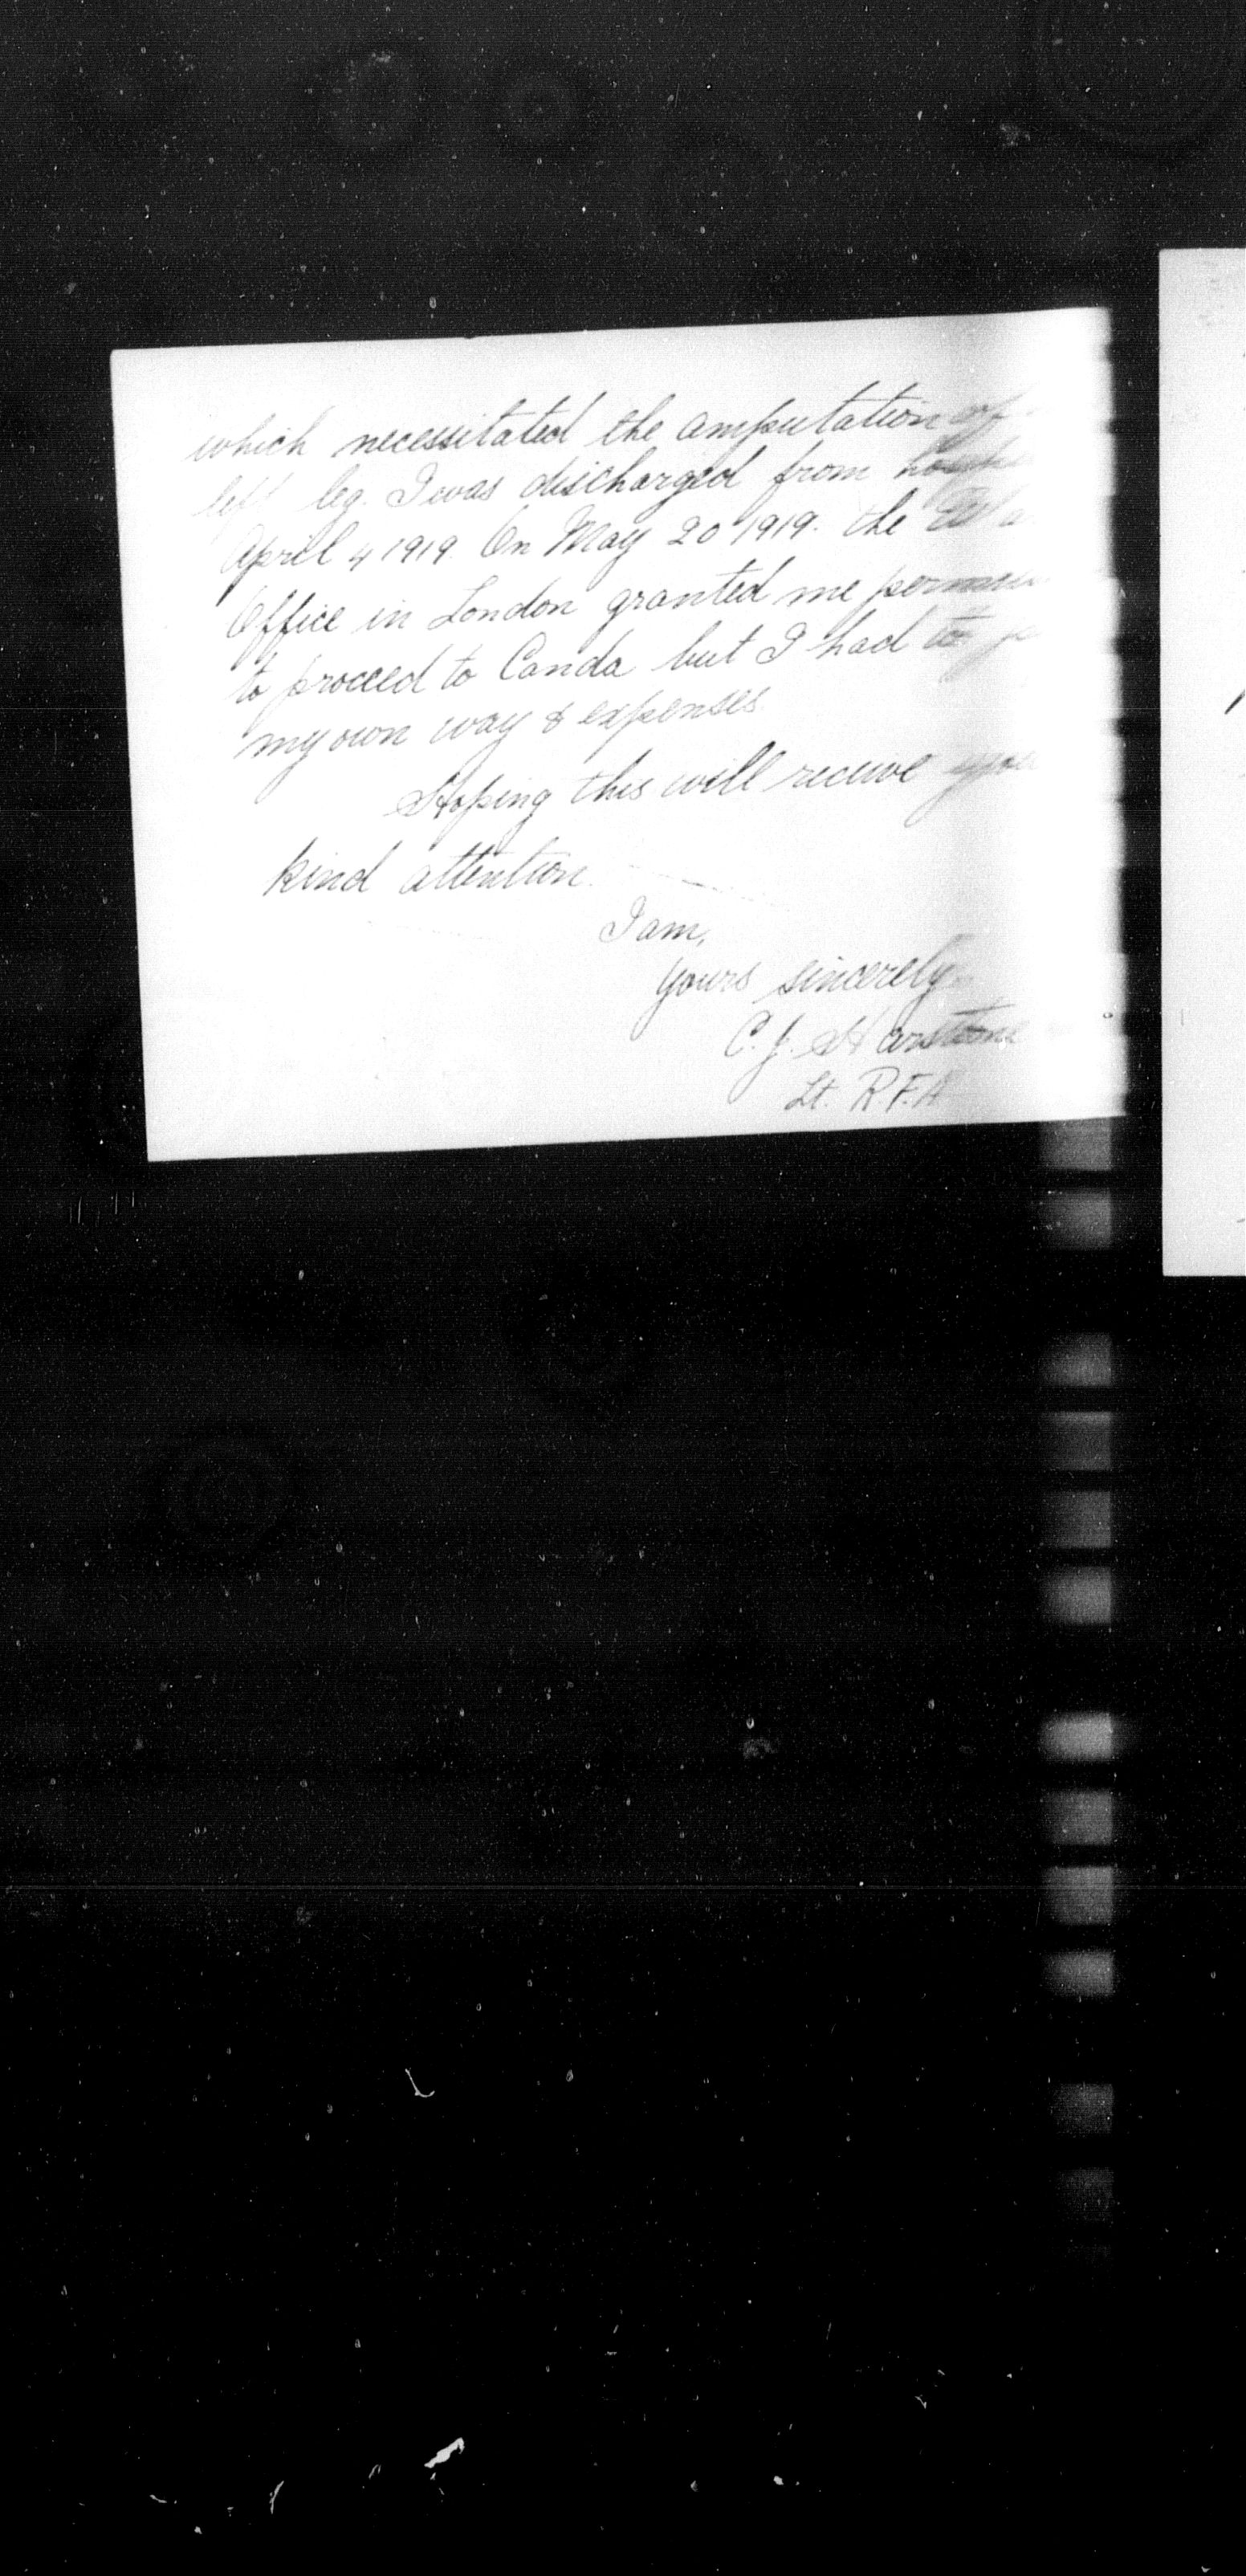 which necessitated the amputation of
left leg. I was discharged from
April 4 1919. On May 20 1919. the
Office in London granted me
to proceed to Canda but I had to
my own way & expenses.
Hoping this will receive
kind attention.
I am,
yours sincerely
C. J. Harstone
Lt. R.F.A